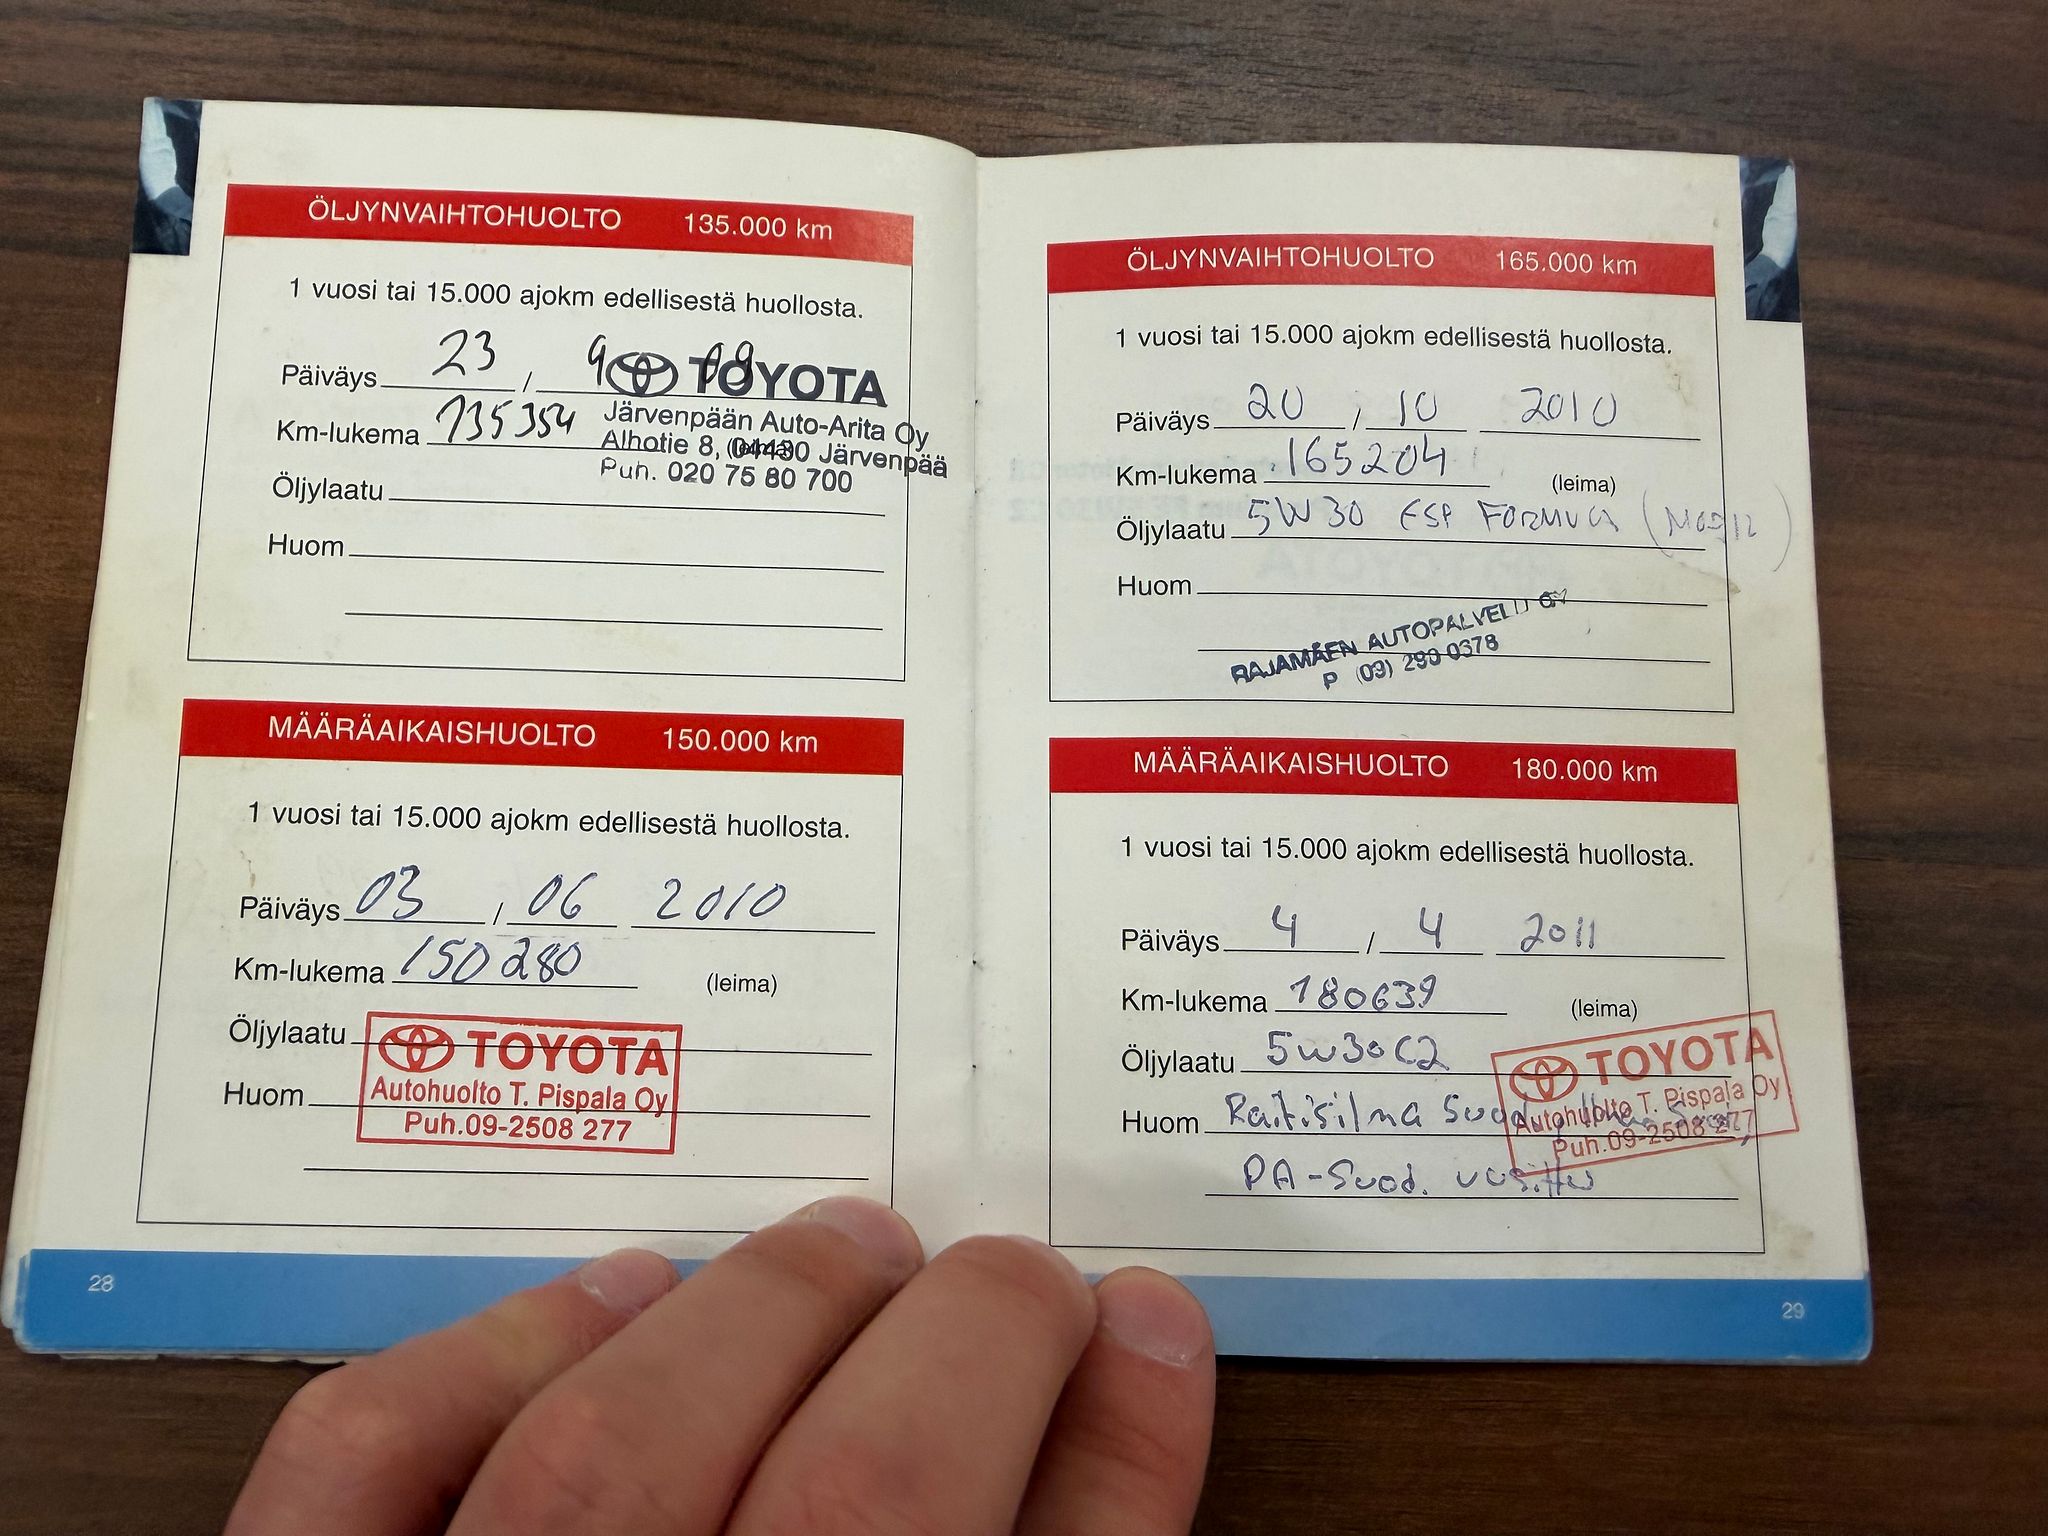 ÖLJYNVAIHTOHUOLTO 135.000 km
1 vuosi tai 15.000 ajokm edellisestä huollosta.
Päiväys 23 / 9 09
TOYOTA
Km-lukema 135354
Järvenpään Auto-Arita Oy
Alhotie 8, 04430 Järvenpää
(leima)
Puh. 020 75 80 700
Öljylaatu
Huom
MÄÄRÄAIKAISHUOLTO 150.000 km
1 vuosi tai 15.000 ajokm edellisestä huollosta.
Päiväys 03 / 06 2010
Km-lukema 150280 (leima)
Öljylaatu
TOYOTA
Autohuolto T. Pispala Oy
Huom
Puh.09-2508 277
28
ÖLJYNVAIHTOHUOLTO 165.000 km
1 vuosi tai 15.000 ajokm edellisestä huollosta.
Päiväys 20 / 10 2010
Km-lukema 165204 (leima)
Öljylaatu 5W30 ESP FORMULA
Huom
RAJAMÄEN AUTOPALVELU OY
P (09) 290 0378
MÄÄRÄAIKAISHUOLTO 180.000 km
1 vuosi tai 15.000 ajokm edellisestä huollosta.
Päiväys 4 / 4 2011
Km-lukema 180639 (leima)
Öljylaatu 5W30 C2
TOYOTA
Autohuolto T. Pispala Oy
Puh.09-2508 277
Huom Raitisilma Suod,
PA-Suod. uusittu
29